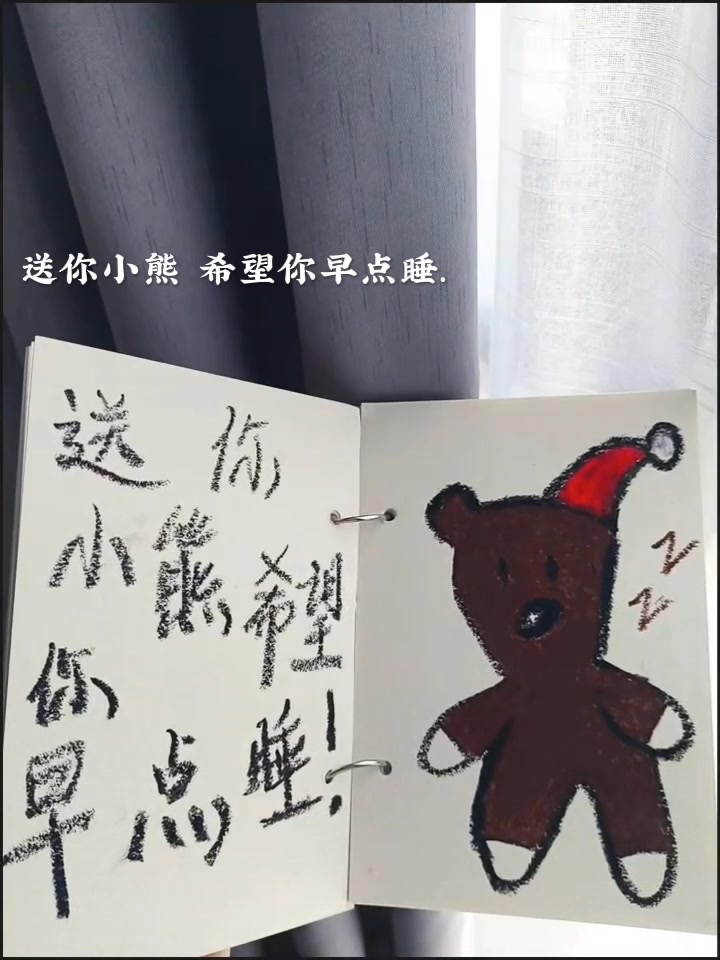 送你小熊 希望你早点睡.
送你
小熊希望
你
早点睡!
z
z